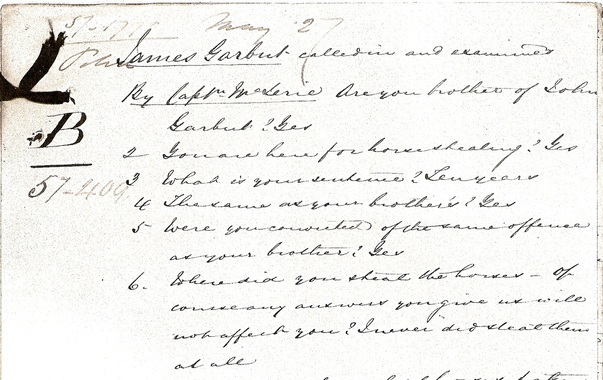 57-1718 May 27
James Garbut called in and examined
By Captn McLerie Are you brother of John
Garbut? Yes
B
2 You are here for horsestealing? Yes
57-409
3 What is your sentence? Ten years
4 The same as your brother's? Yes
5 Were you convicted of the same offence
as your brother? Yes
6. Where did you steal the horses - Of
course any answers you give us will
not affect you? I never did steal them
at all